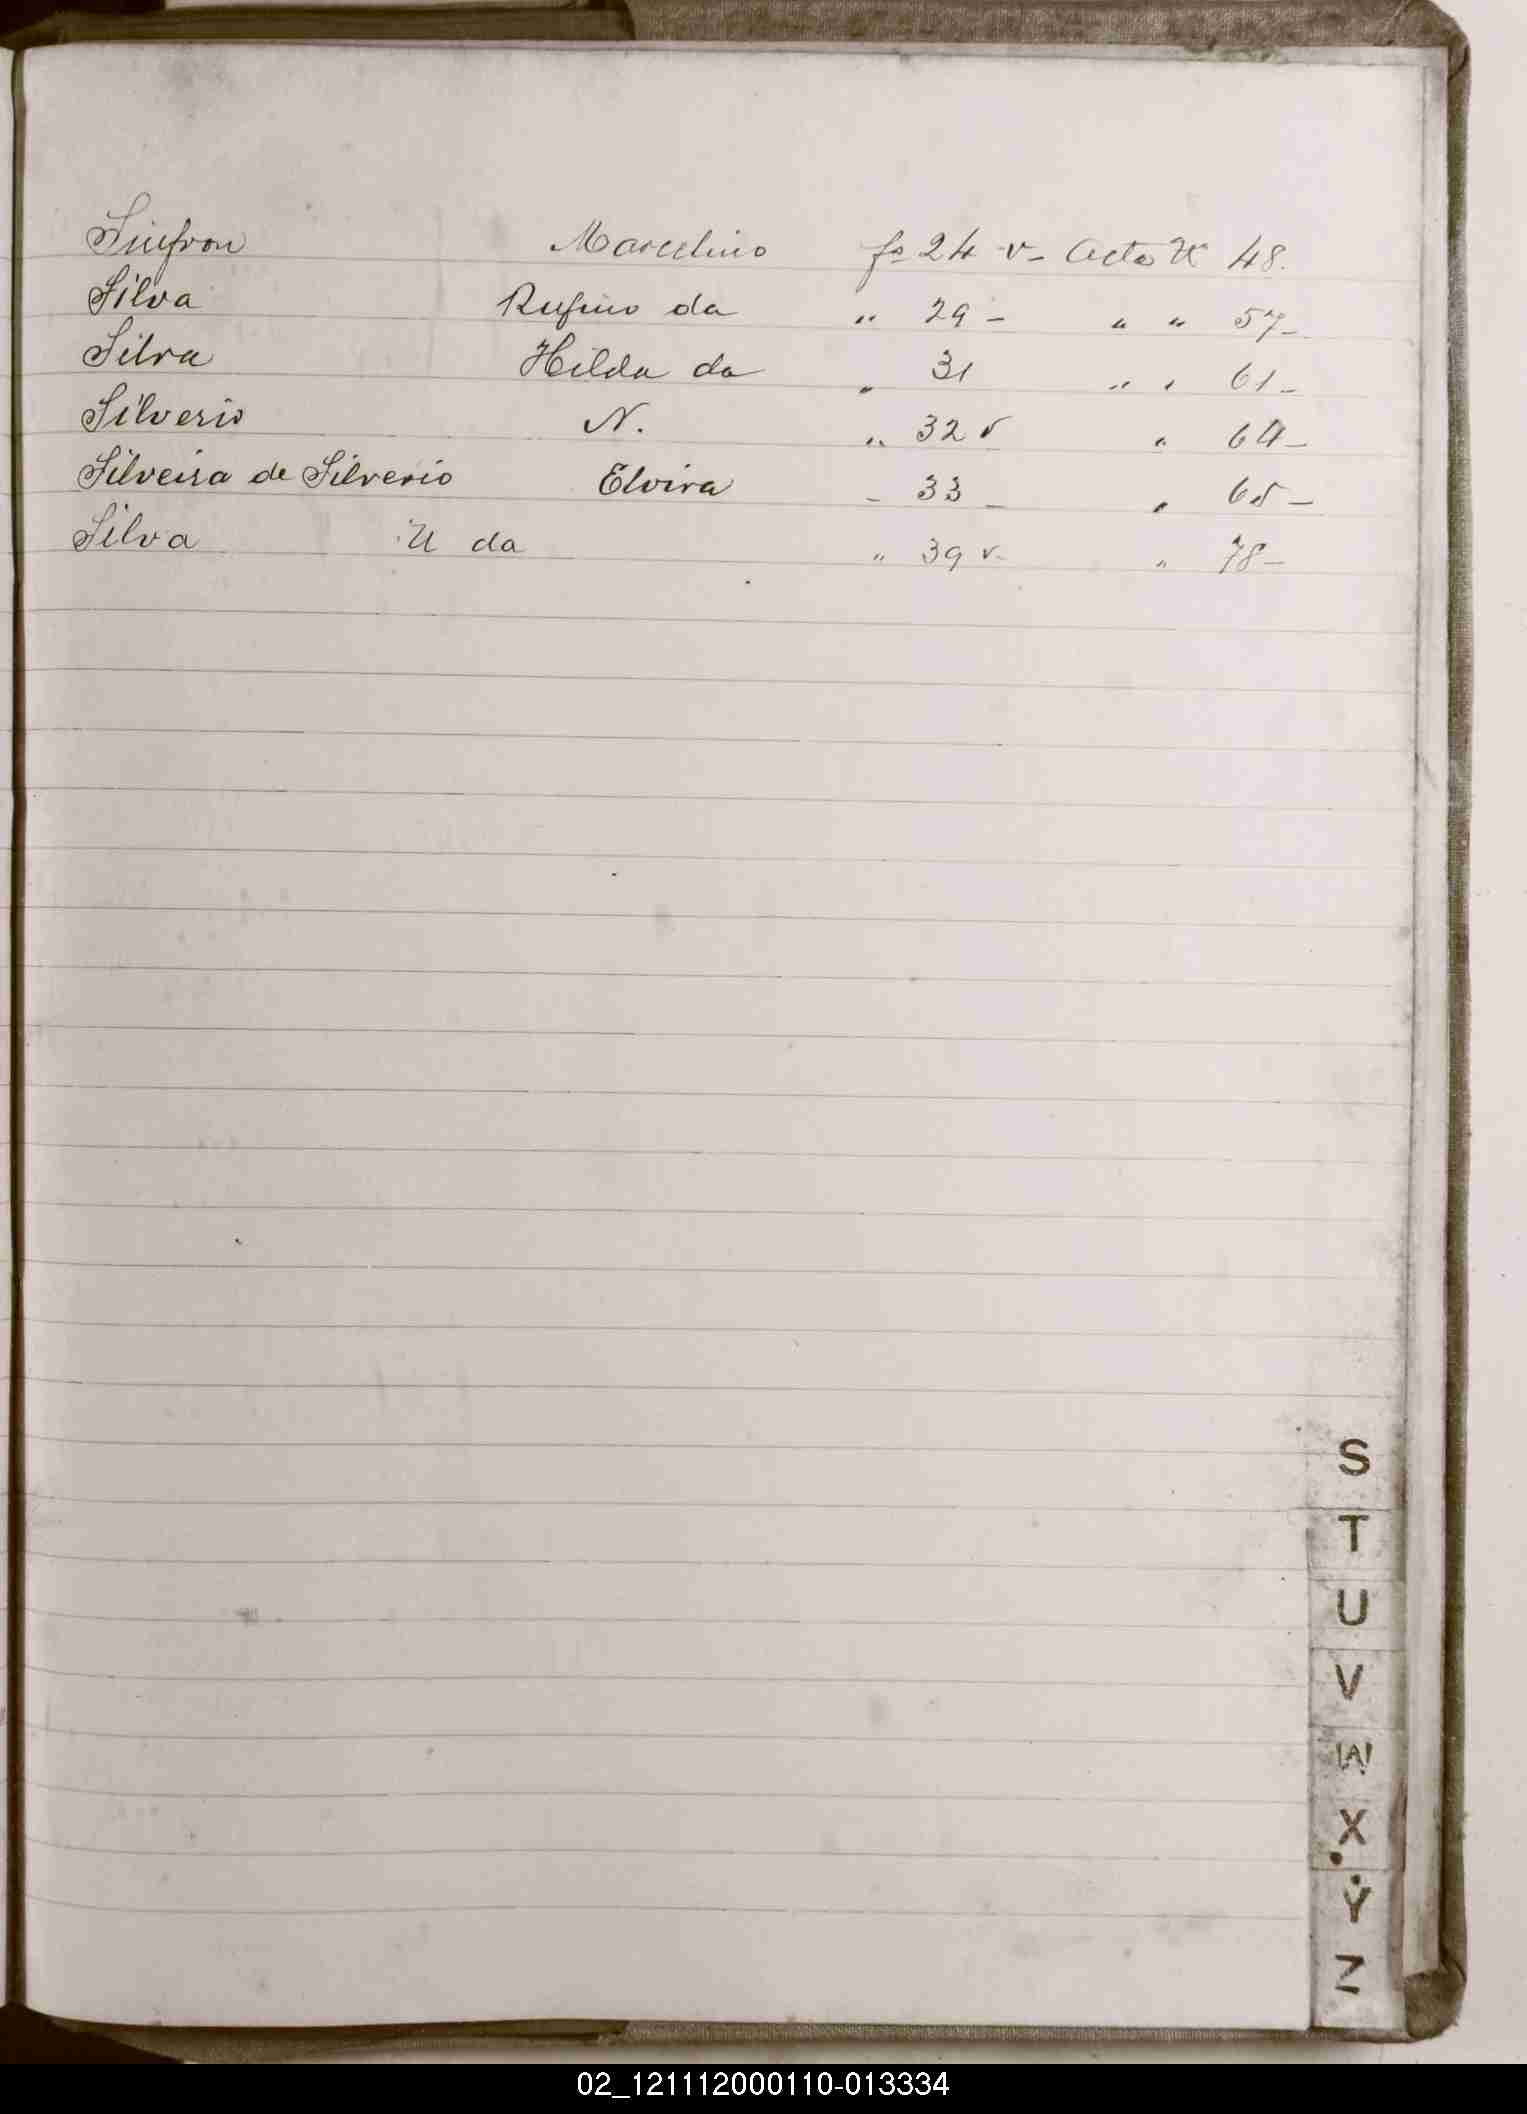 Sinfron Marcelino fs 24 v- Acta N 48.
Silva Rufino da " 29 - " " 57-
Silva Hilda da " 31 " " 61-
Silverio N. " 32 v " 64-
Silveira de Silverio Elvira - 33 - " 65-
Silva N da " 39 v- " 78-
S
T
U
V
W
X
Y
Z
02_121112000110-013334